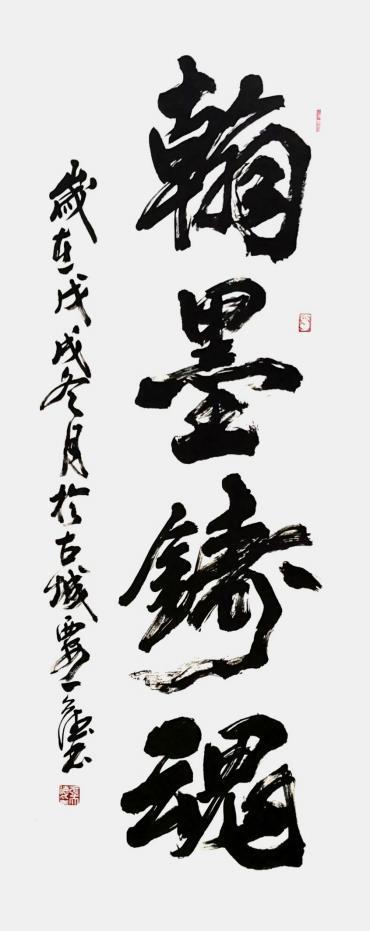 翰墨铸魂
歲在戊戌冬月於古城